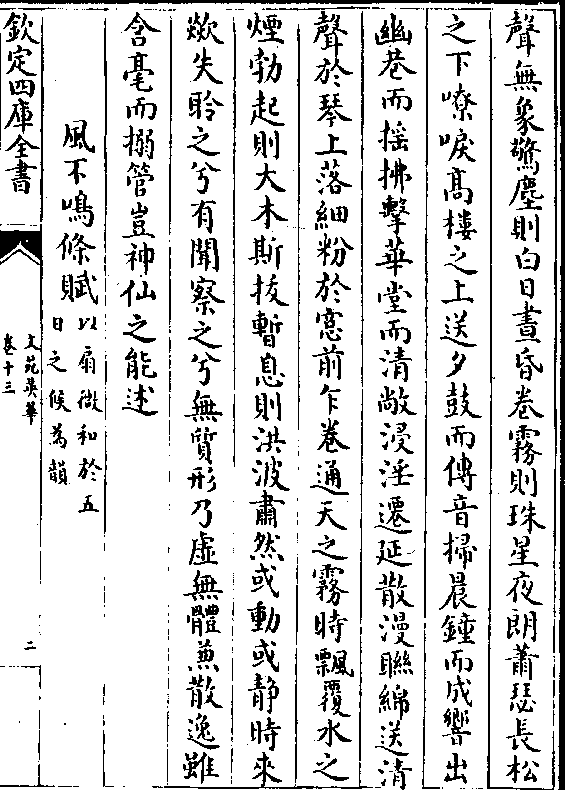 聲無象驚塵則白日晝昏卷霧則珠星夜朗蕭瑟長松
之下嘹唳髙樓之上送夕鼓而傳音掃晨鐘而成響出
幽巷而揺拂擊華堂而清敞浸淫遷延散漫聯綿送清
聲於琴上落細粉於窓前乍卷通天之霧時飄覆水之
煙勃起則大木斯拔暫息則洪波肅然或動或静時來
歘失聆之兮有聞察之兮無質形乃虛無體兼散逸雖
含毫而搦管豈神仙之能述
風不鳴條賦以扇微和於五
日之候為韻
欽定四庫全書
文苑英華
卷十三
二